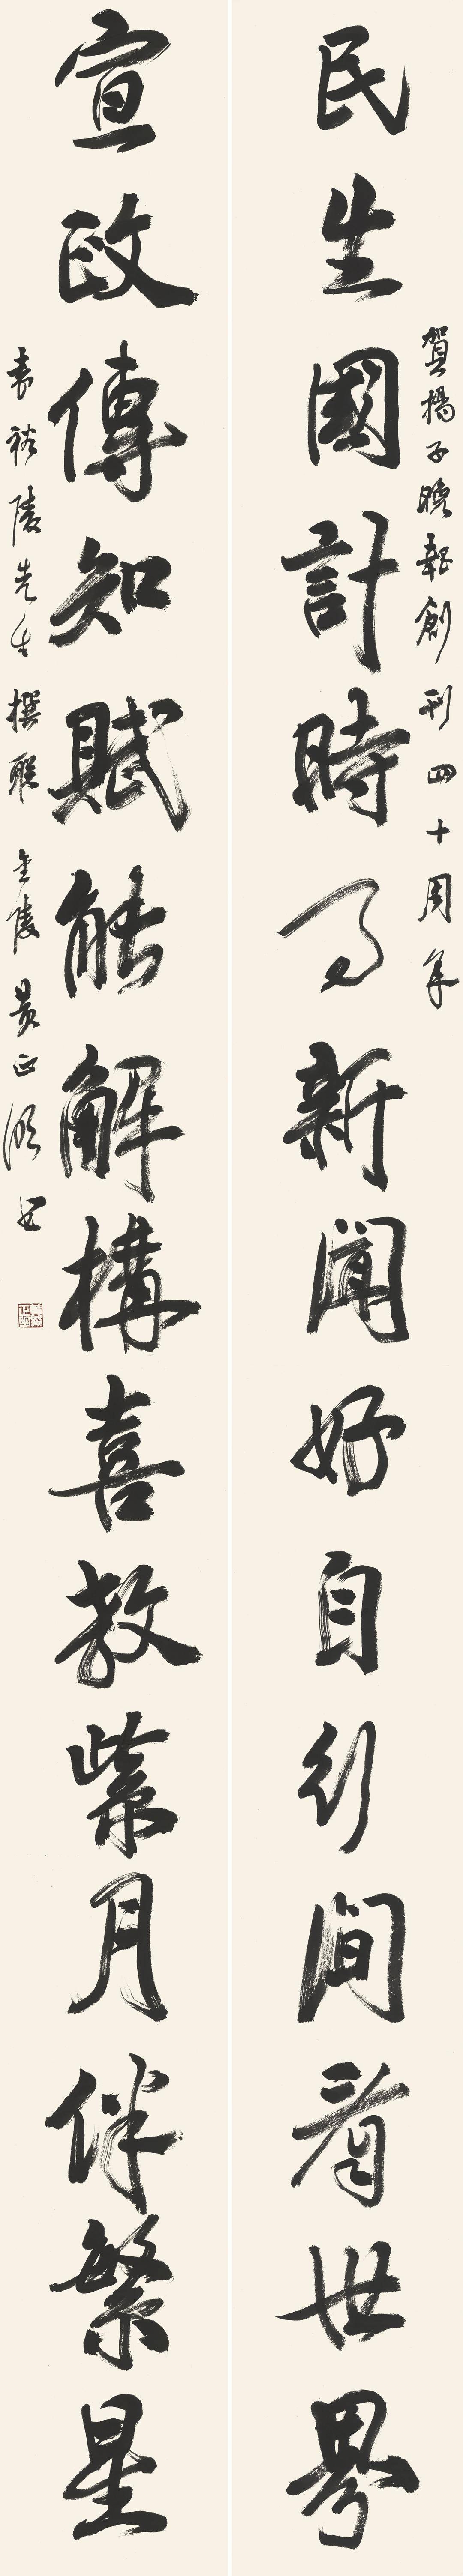 賀揚子晚報創刊四十周年
民生國計時事新聞好自行間看世界
宣政傳知賦能解構喜教紫月伴繁星
袁裕陵先生撰聯 金陵黃正明書